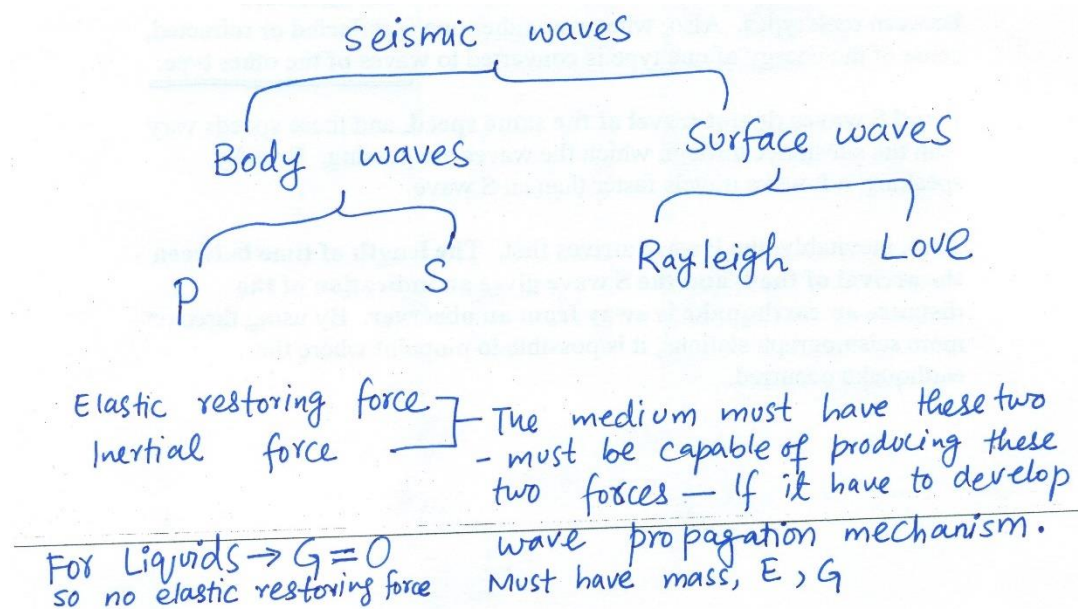 Seismic waves
Body waves
Surface waves
P
S
Rayleigh
Love
Elastic restoring force
Inertial force
- The medium must have these two
- must be capable of producing these
two forces — If it have to develop
wave propagation mechanism.
Must have mass, E, G
For Liquids → G = 0
so no elastic restoring force